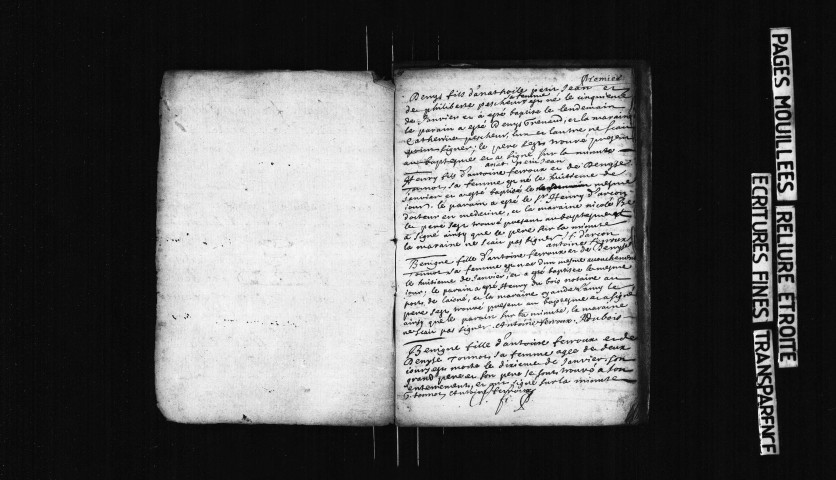 premier
Denys fils d'anathoile petit Jean et
de philiberte pescheur sa femme est né le cinquieme
de Janvier et a esté baptisé le lendemain
le parain a esté Denys Grenaud, et la maraine
Catherine pescheur, l'un et l'autre ne scait
point signer, le pere s'est trouvé present
au baptesme et a signé sur la minute
anat. petit Jean
Henry fils d'antoine ferroux et de Denyse
Tonnot sa femme est né le huitieme de
Janvier et a esté baptisé le mesme
jour, le parain a esté le sr Henry d'arcon
docteur en medecine, et la maraine nicole
le pere s'est trouvé present au baptesme et
a signé ainsy que le pere sur la minute
la maraine ne scait pas signer. h. d'arcon
antoine ferroux
Benigne fille d'antoine ferroux et de Denyse
Tonnot sa femme est née d'un mesme accouchement
le huitieme de Janvier, et a esté baptisée le mesme
jour, le parain a esté Henry du bois notaire au
port de et la maraine
pere s'est trouvé present au baptesme et a signé
ainsy que le parain sur la minute, la maraine
ne scait pas signer. Antoine ferroux. HDubois
Benigne fille d'antoine ferroux et de
Denyse Tonnot sa femme agée de deux
jours est morte le dixieme de Janvier, son
grand pere et son pere se sont trouvé a son
enterrement, et ont signé sur la minute
tonnot Antoine ferroux
PAGES MOUILLEES RELIURE ETROITE
ECRITURES FINES TRANSPARENCE